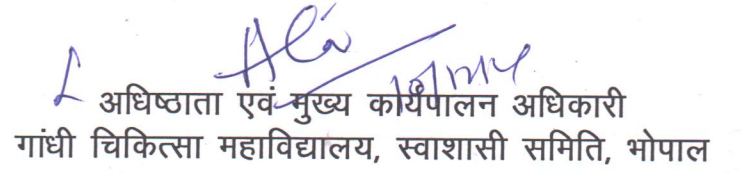 अधिष्ठाता एवं मुख्य कार्यपालन अधिकारी
गांधी चिकित्सा महाविद्यालय, स्वाशासी समिति, भोपाल